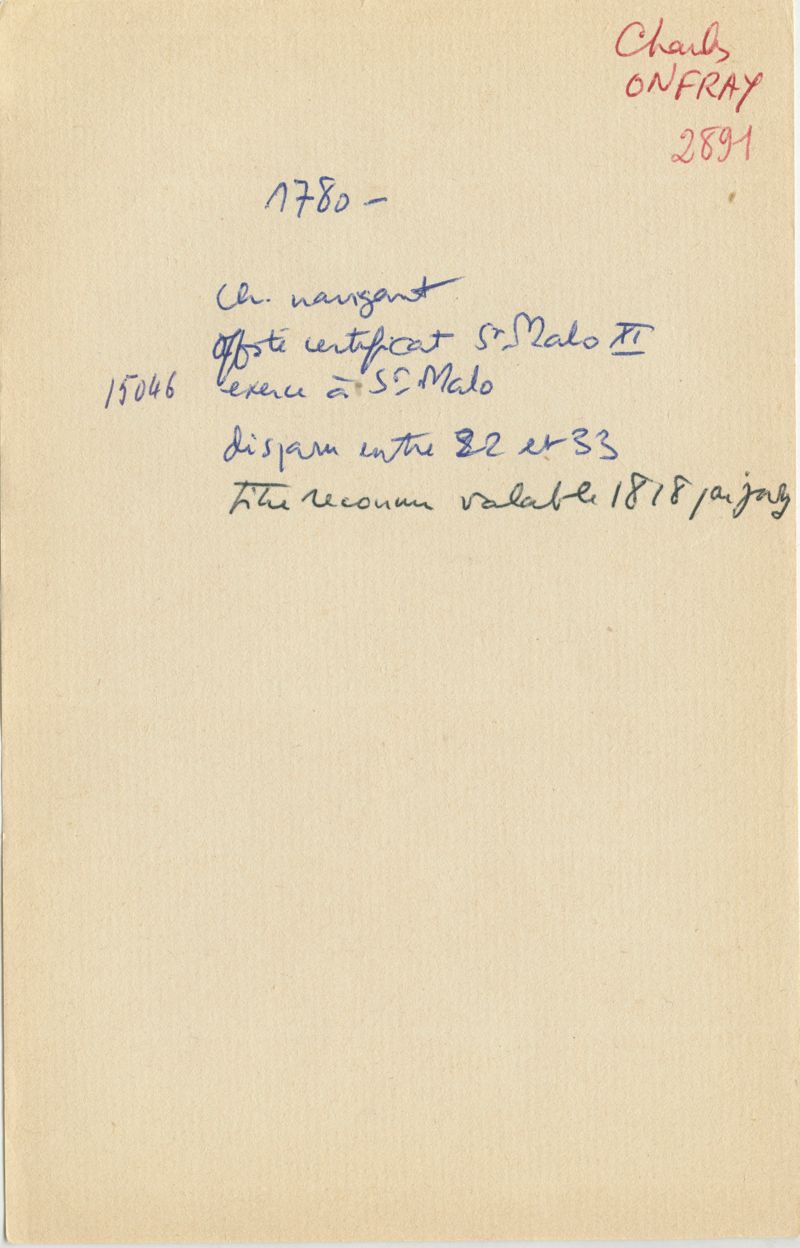 Charles
ONFRAY
2891
1780 -
Ch. navigant
certificat St Malo XI
15046 exerce à St Malo
disparu entre 22 et 33
titre reconnu valable 1818 par jury